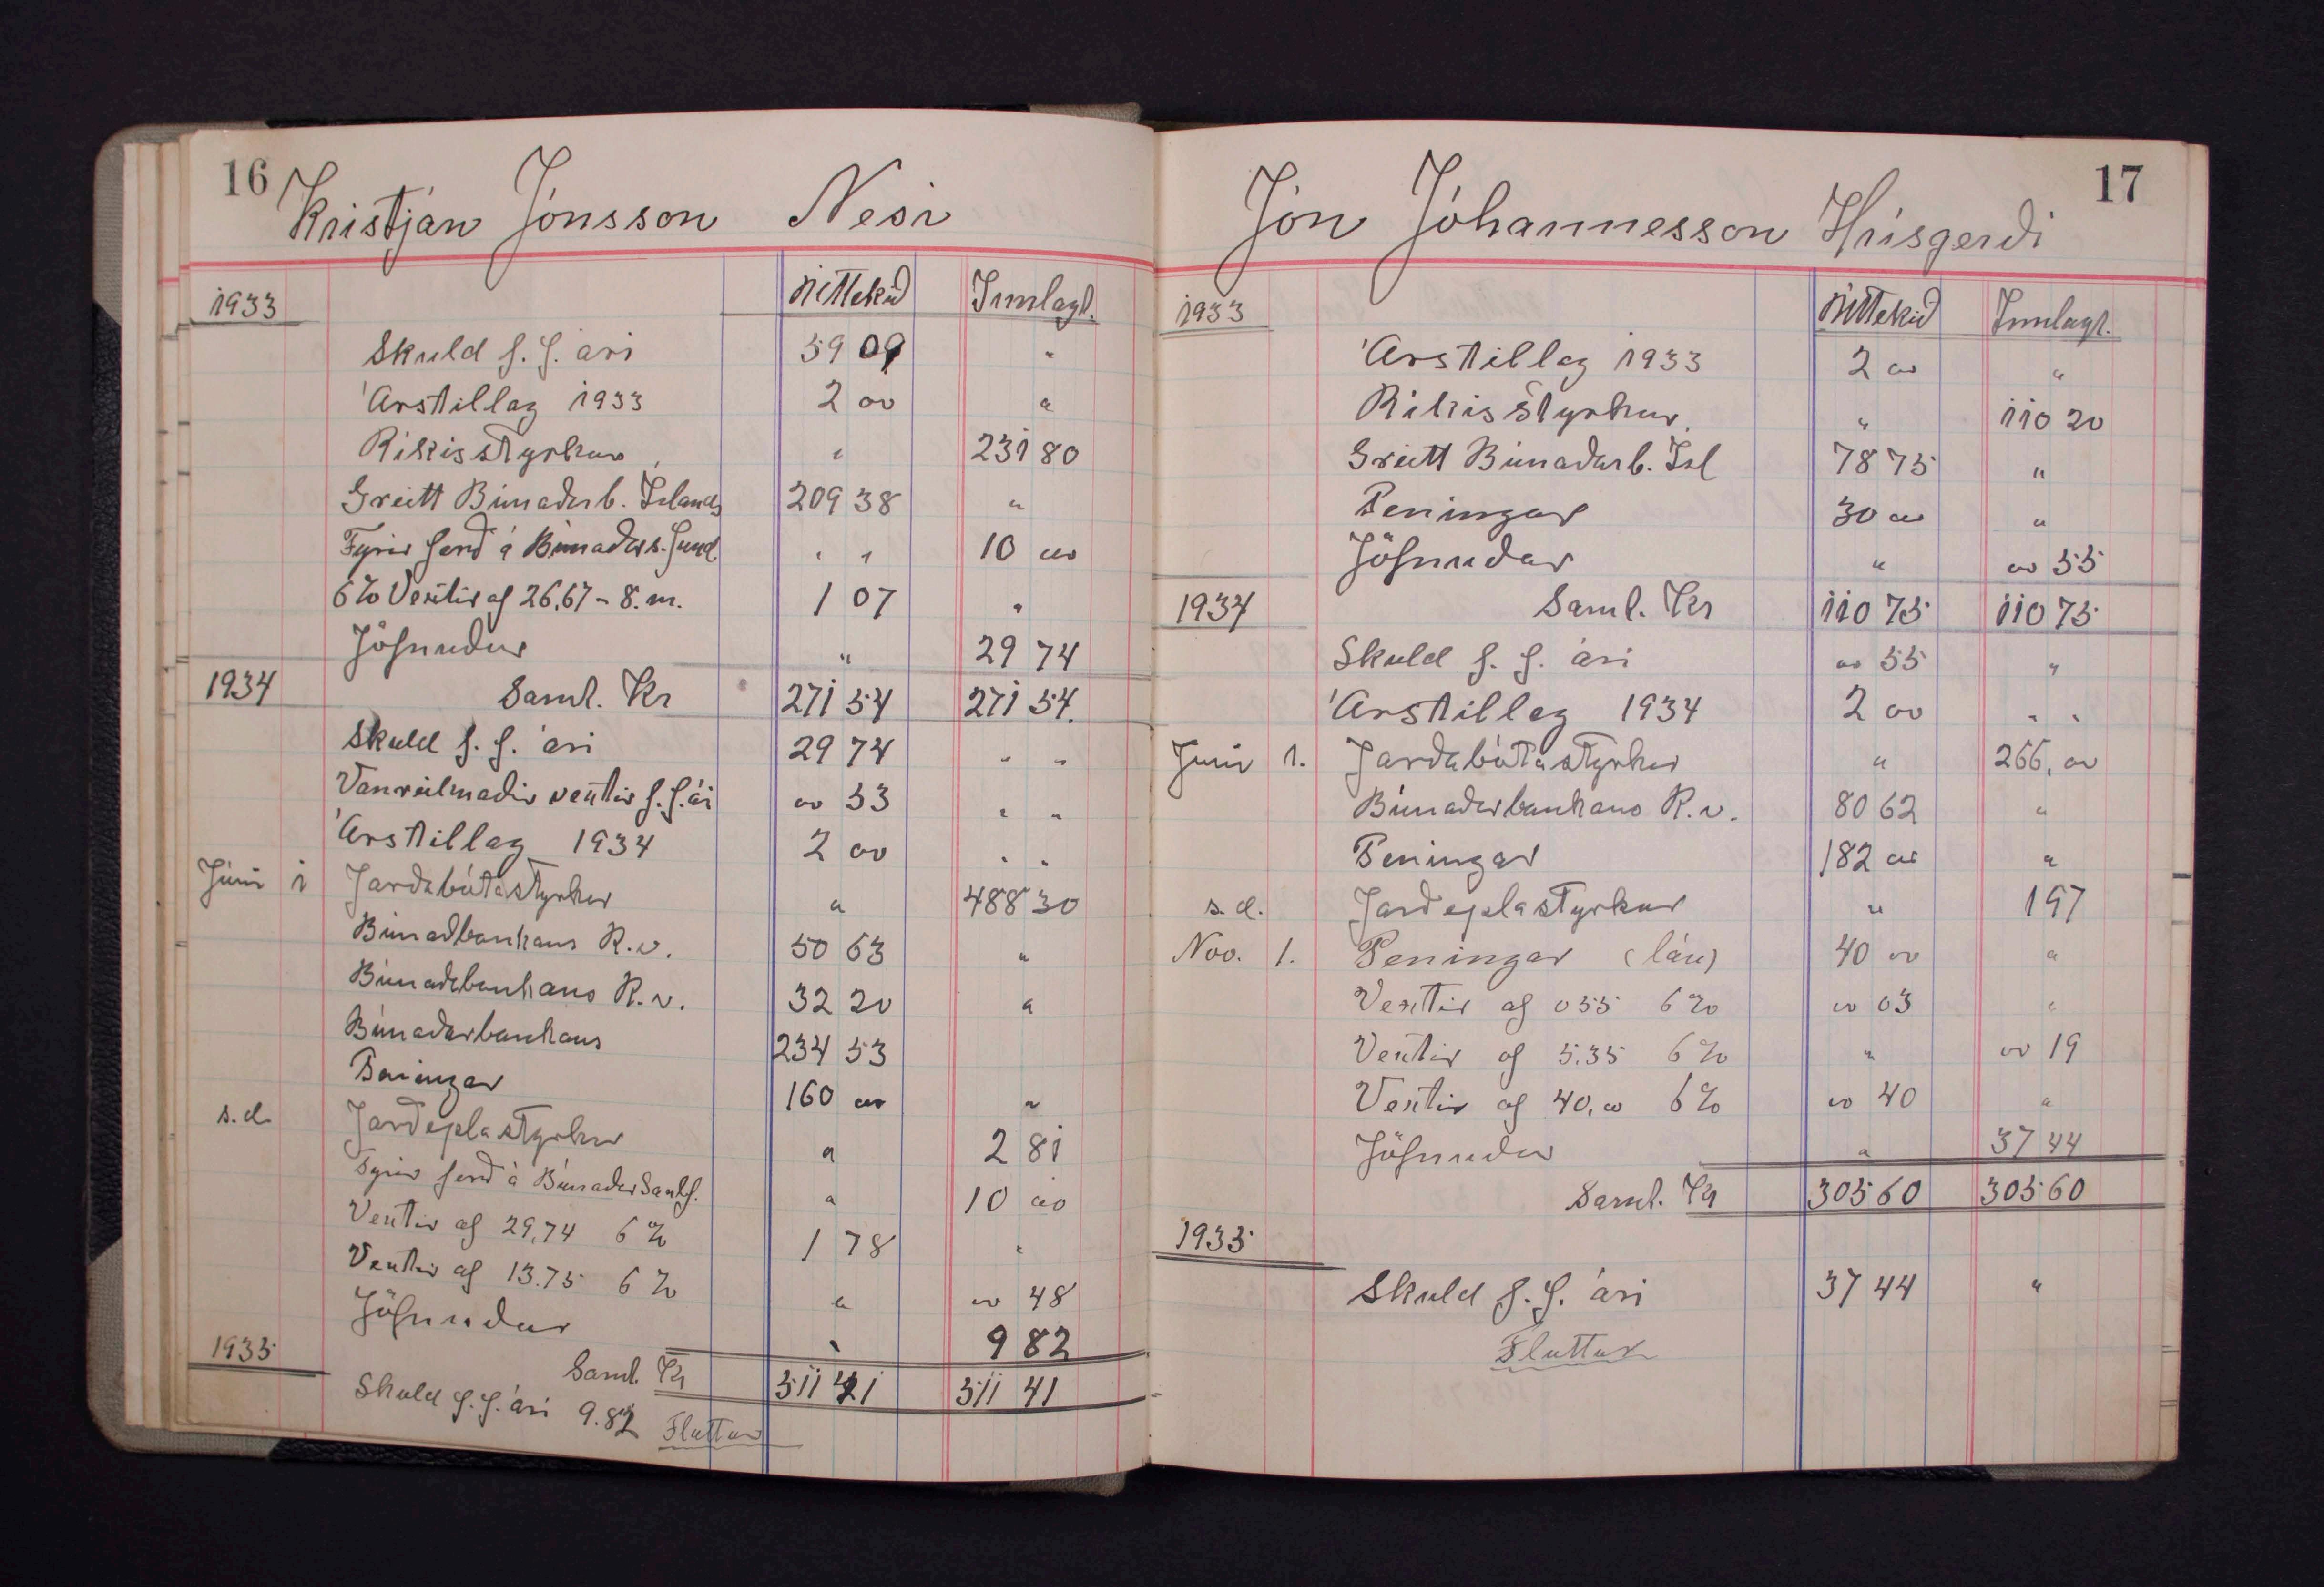 16
Kristján Jónsson Nesi
1933 Úttekið Innlagt.
Skuld f. f. ári 59 09 "
Árstillag 1933 2 00 "
Ríkisstyrkur " 231 80
Greitt Búnaðarb. Íslands 209 38 "
Fyrir ferð á Búnaðars.fund. " " 10 00
6% Vextir af 26,67 - 8. m. 1 07 "
Jöfnuður " 29 74
1934 Saml. Kr 271 54 271 54.
Skuld f. f. ári 29 74 " "
Vanreiknaðir vextir f. f. ár 00 53 " "
Árstillag 1934 2 00 " "
Júní 1 Jarðabótastyrkur " 488 30
Búnaðbankans R.v. 50 63 "
Búnaðabankans R.v. 32 20 "
Búnaðarbankans 234 53
Peningar 160 00 "
s.d. Jarðeplastyrkur " 2 81
Fyrir ferð á Búnaðarsambf. " 10 00
Vextir af 29,74 6% 1 78 "
Vextir af 13.75 6% " 00 48
Jöfnuður " 9 82
1935 Saml. Kr 511 41 511 41
Skuld f. f. ári 9.82 Fluttur
17
Jón Jóhannesson Hrísgerði
1933 Úttekið Innlagt.
Árstillag 1933 2 00 "
Ríkisstyrkur. " 110 20
Greitt Búnaðarb. Ísl 78 75 "
Peningar 30 00 "
Jöfnuður " 00 55
1934 Saml. Kr 110 75 110 75
Skuld f. f. ári 00 55 "
Árstillag 1934 2 00 " "
Júní 1. Jarðabótastyrkur " 266, 00
Búnaðarbankans R.v. 80 62 "
Peningar 182 00 "
s.d. Jarðeplastyrkur " 1 97
Nov. 1. Peningar (lán) 40 00 "
Vextir af 0 55 6% 00 03 "
Vextir af 5.35 6% " 00 19
Vextir af 40,00 6% 00 40 "
Jöfnuður " 37 44
Saml. Kr 305 60 305 60
1935
Skuld f. f. ári 37 44 "
Fluttur